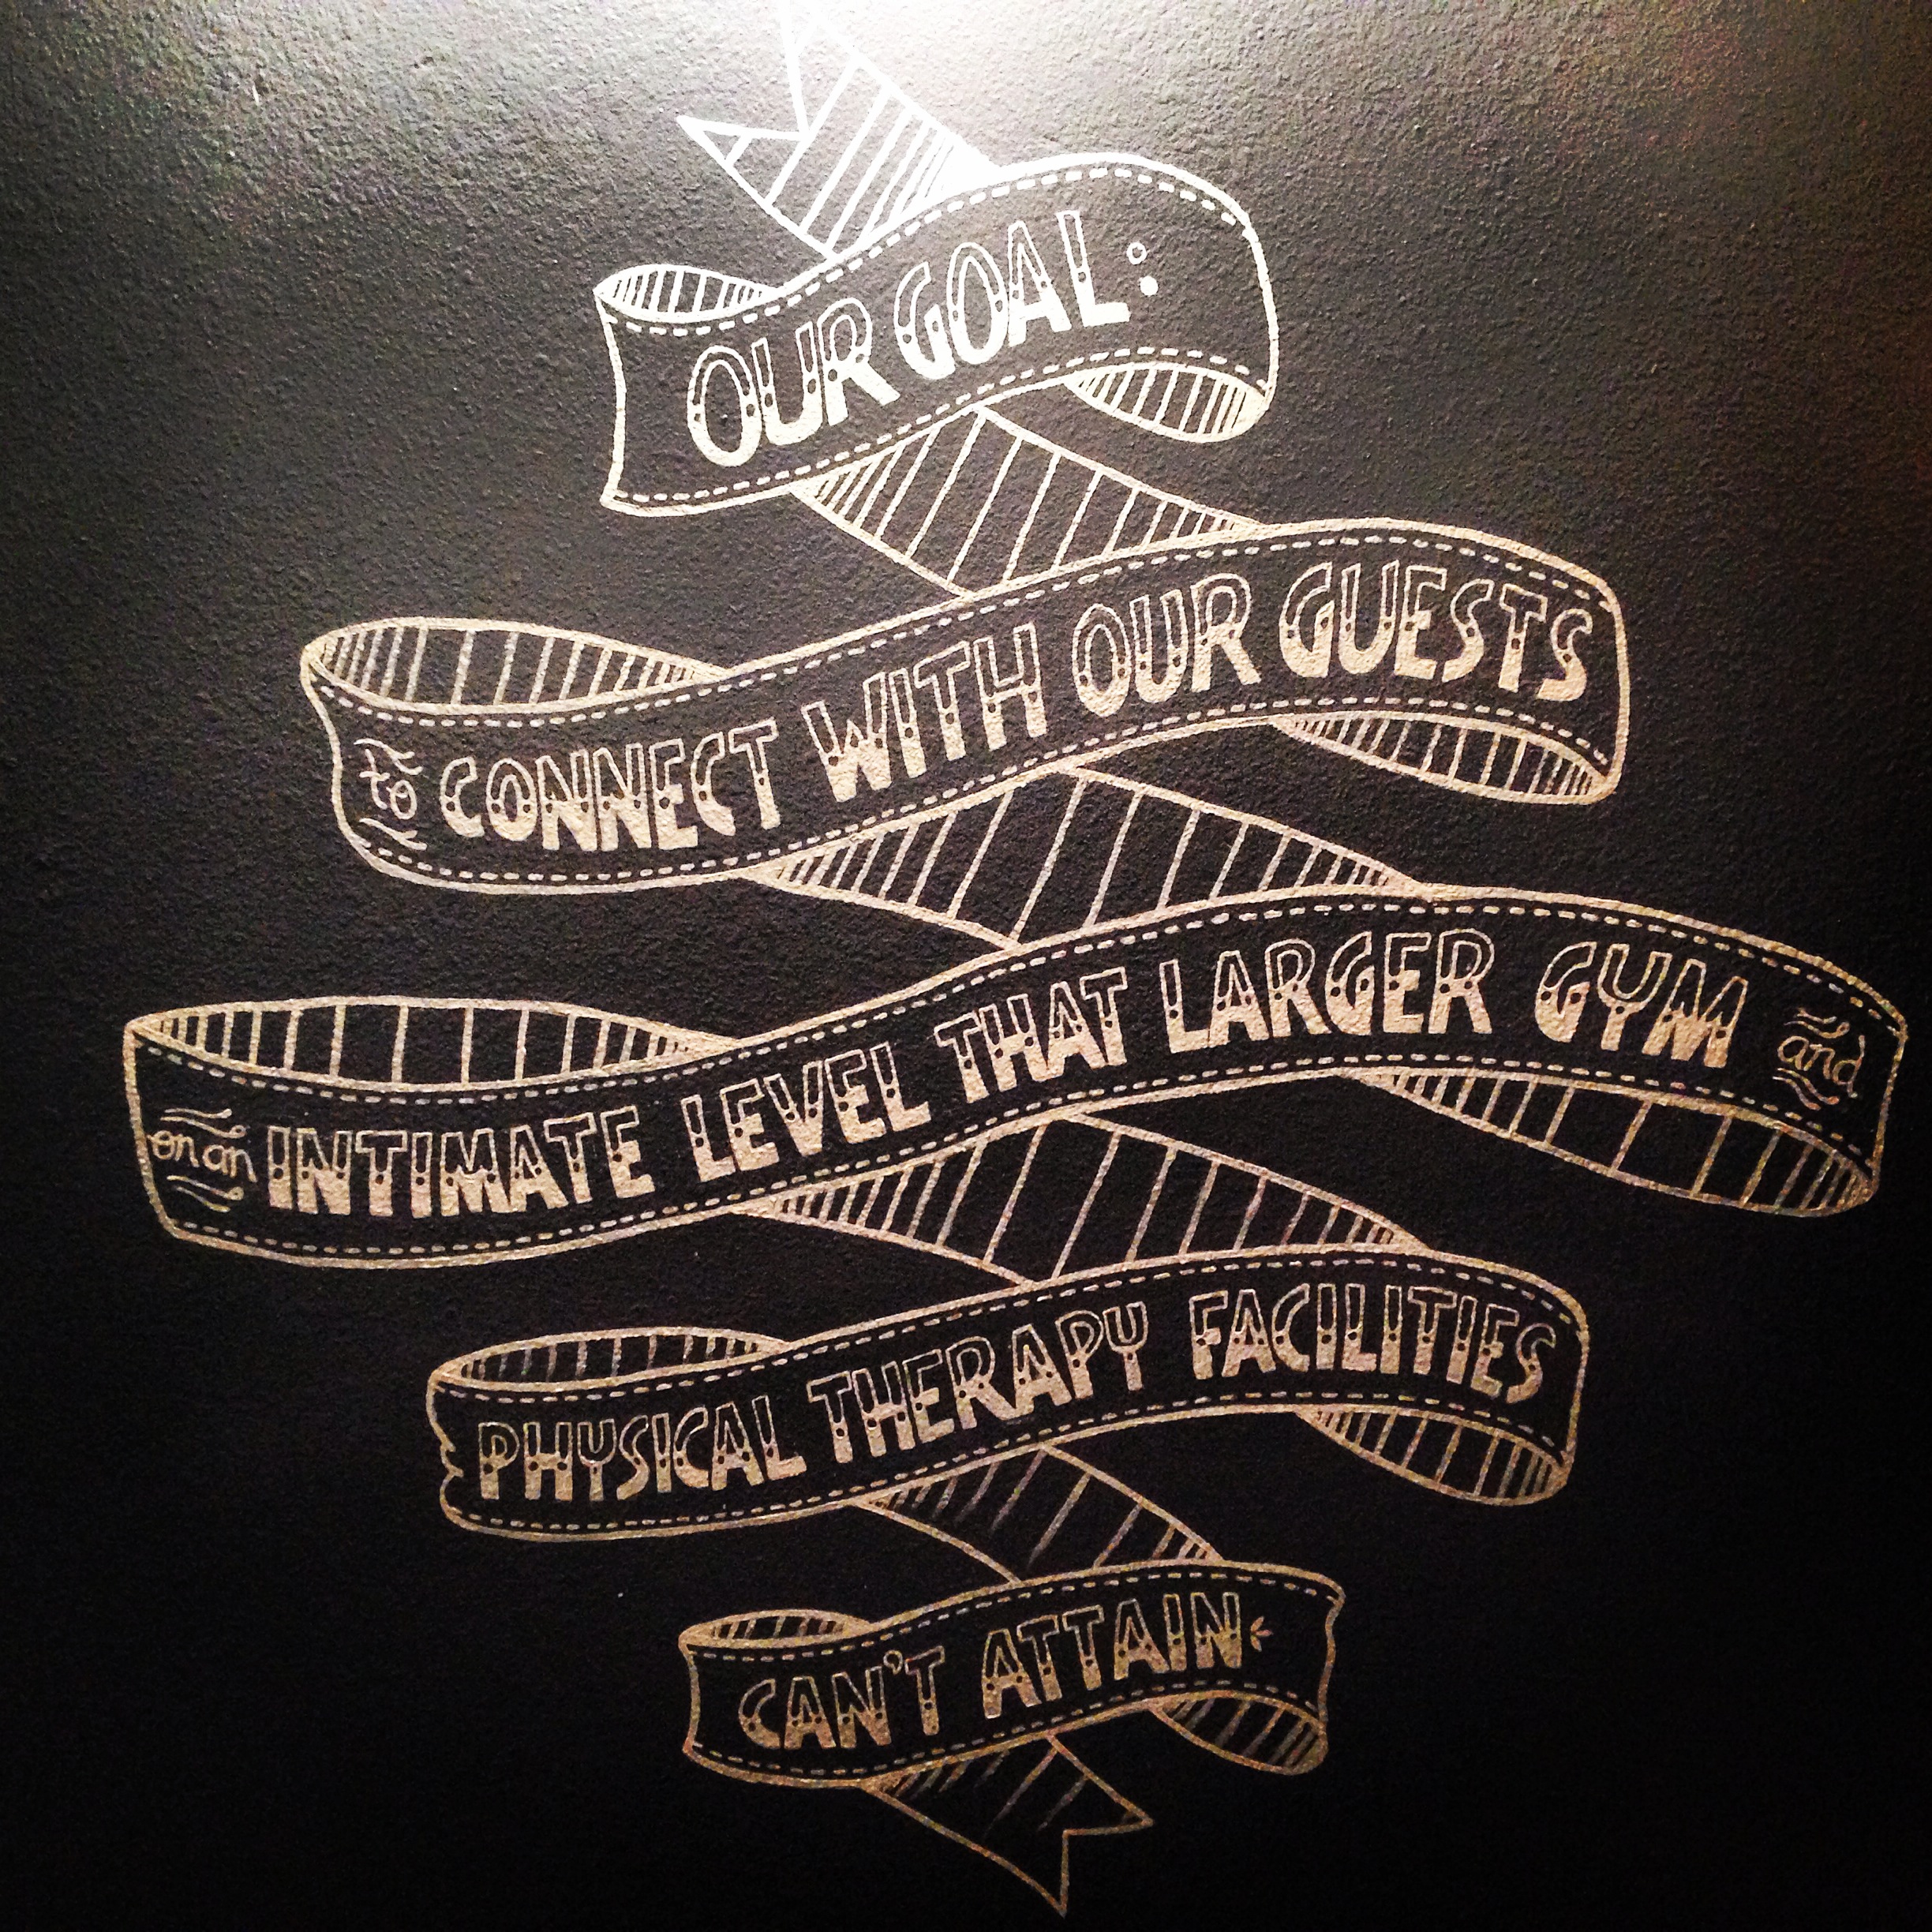 OUR GOAL:
to CONNECT WITH OUR GUESTS
on an INTIMATE LEVEL THAT LARGER GYM and
PHYSICAL THERAPY FACILITIES
CAN'T ATTAIN